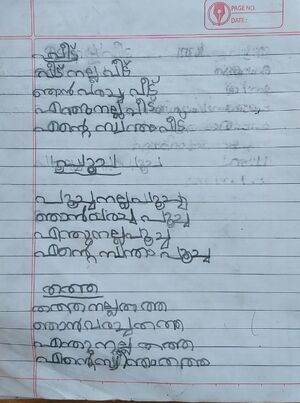 PAGE NO.
DATE:
വീട്
വീട് നല്ല വീട്
ഞാൻ വരച്ച വീട്
എന്തുനല്ല വീട്
എന്റെ സ്വന്തം വീട്
പൂച്ച
പൂച്ചനല്ലപൂച്ച
ഞാൻവരച്ച പൂച്ച
എന്തുനല്ലപൂച്ച
എന്റെ സ്വന്താ പൂച്ച
തത്ത
തത്തനല്ലതത്ത
ഞാൻവരച്ചതത്ത
എന്തുനല്ല തത്ത
എന്റെസ്വന്താതത്ത